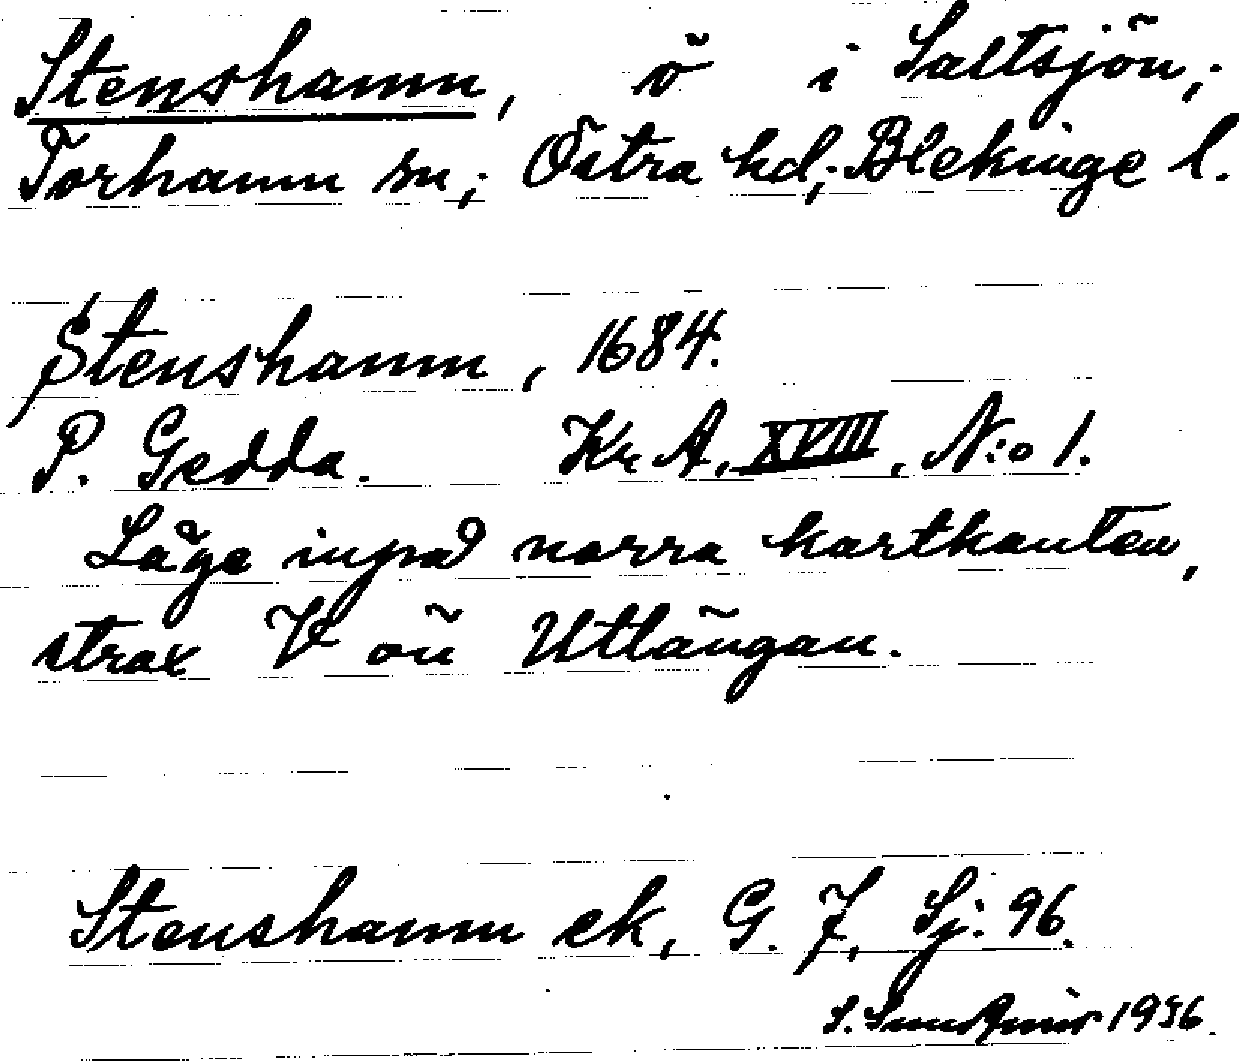 Stenshamn, ö i Saltsjön,
Torhamn sn; Östra hd; Blekinge l.
Stenshamn, 1684.
P. Gedda. Kr. A, XVIII, N:o 1.
Läge inpå norra kartkanten,
strax V ön Utlängan.
Stenshamn ek, G. 7, Sj: 96.
S. 1936.